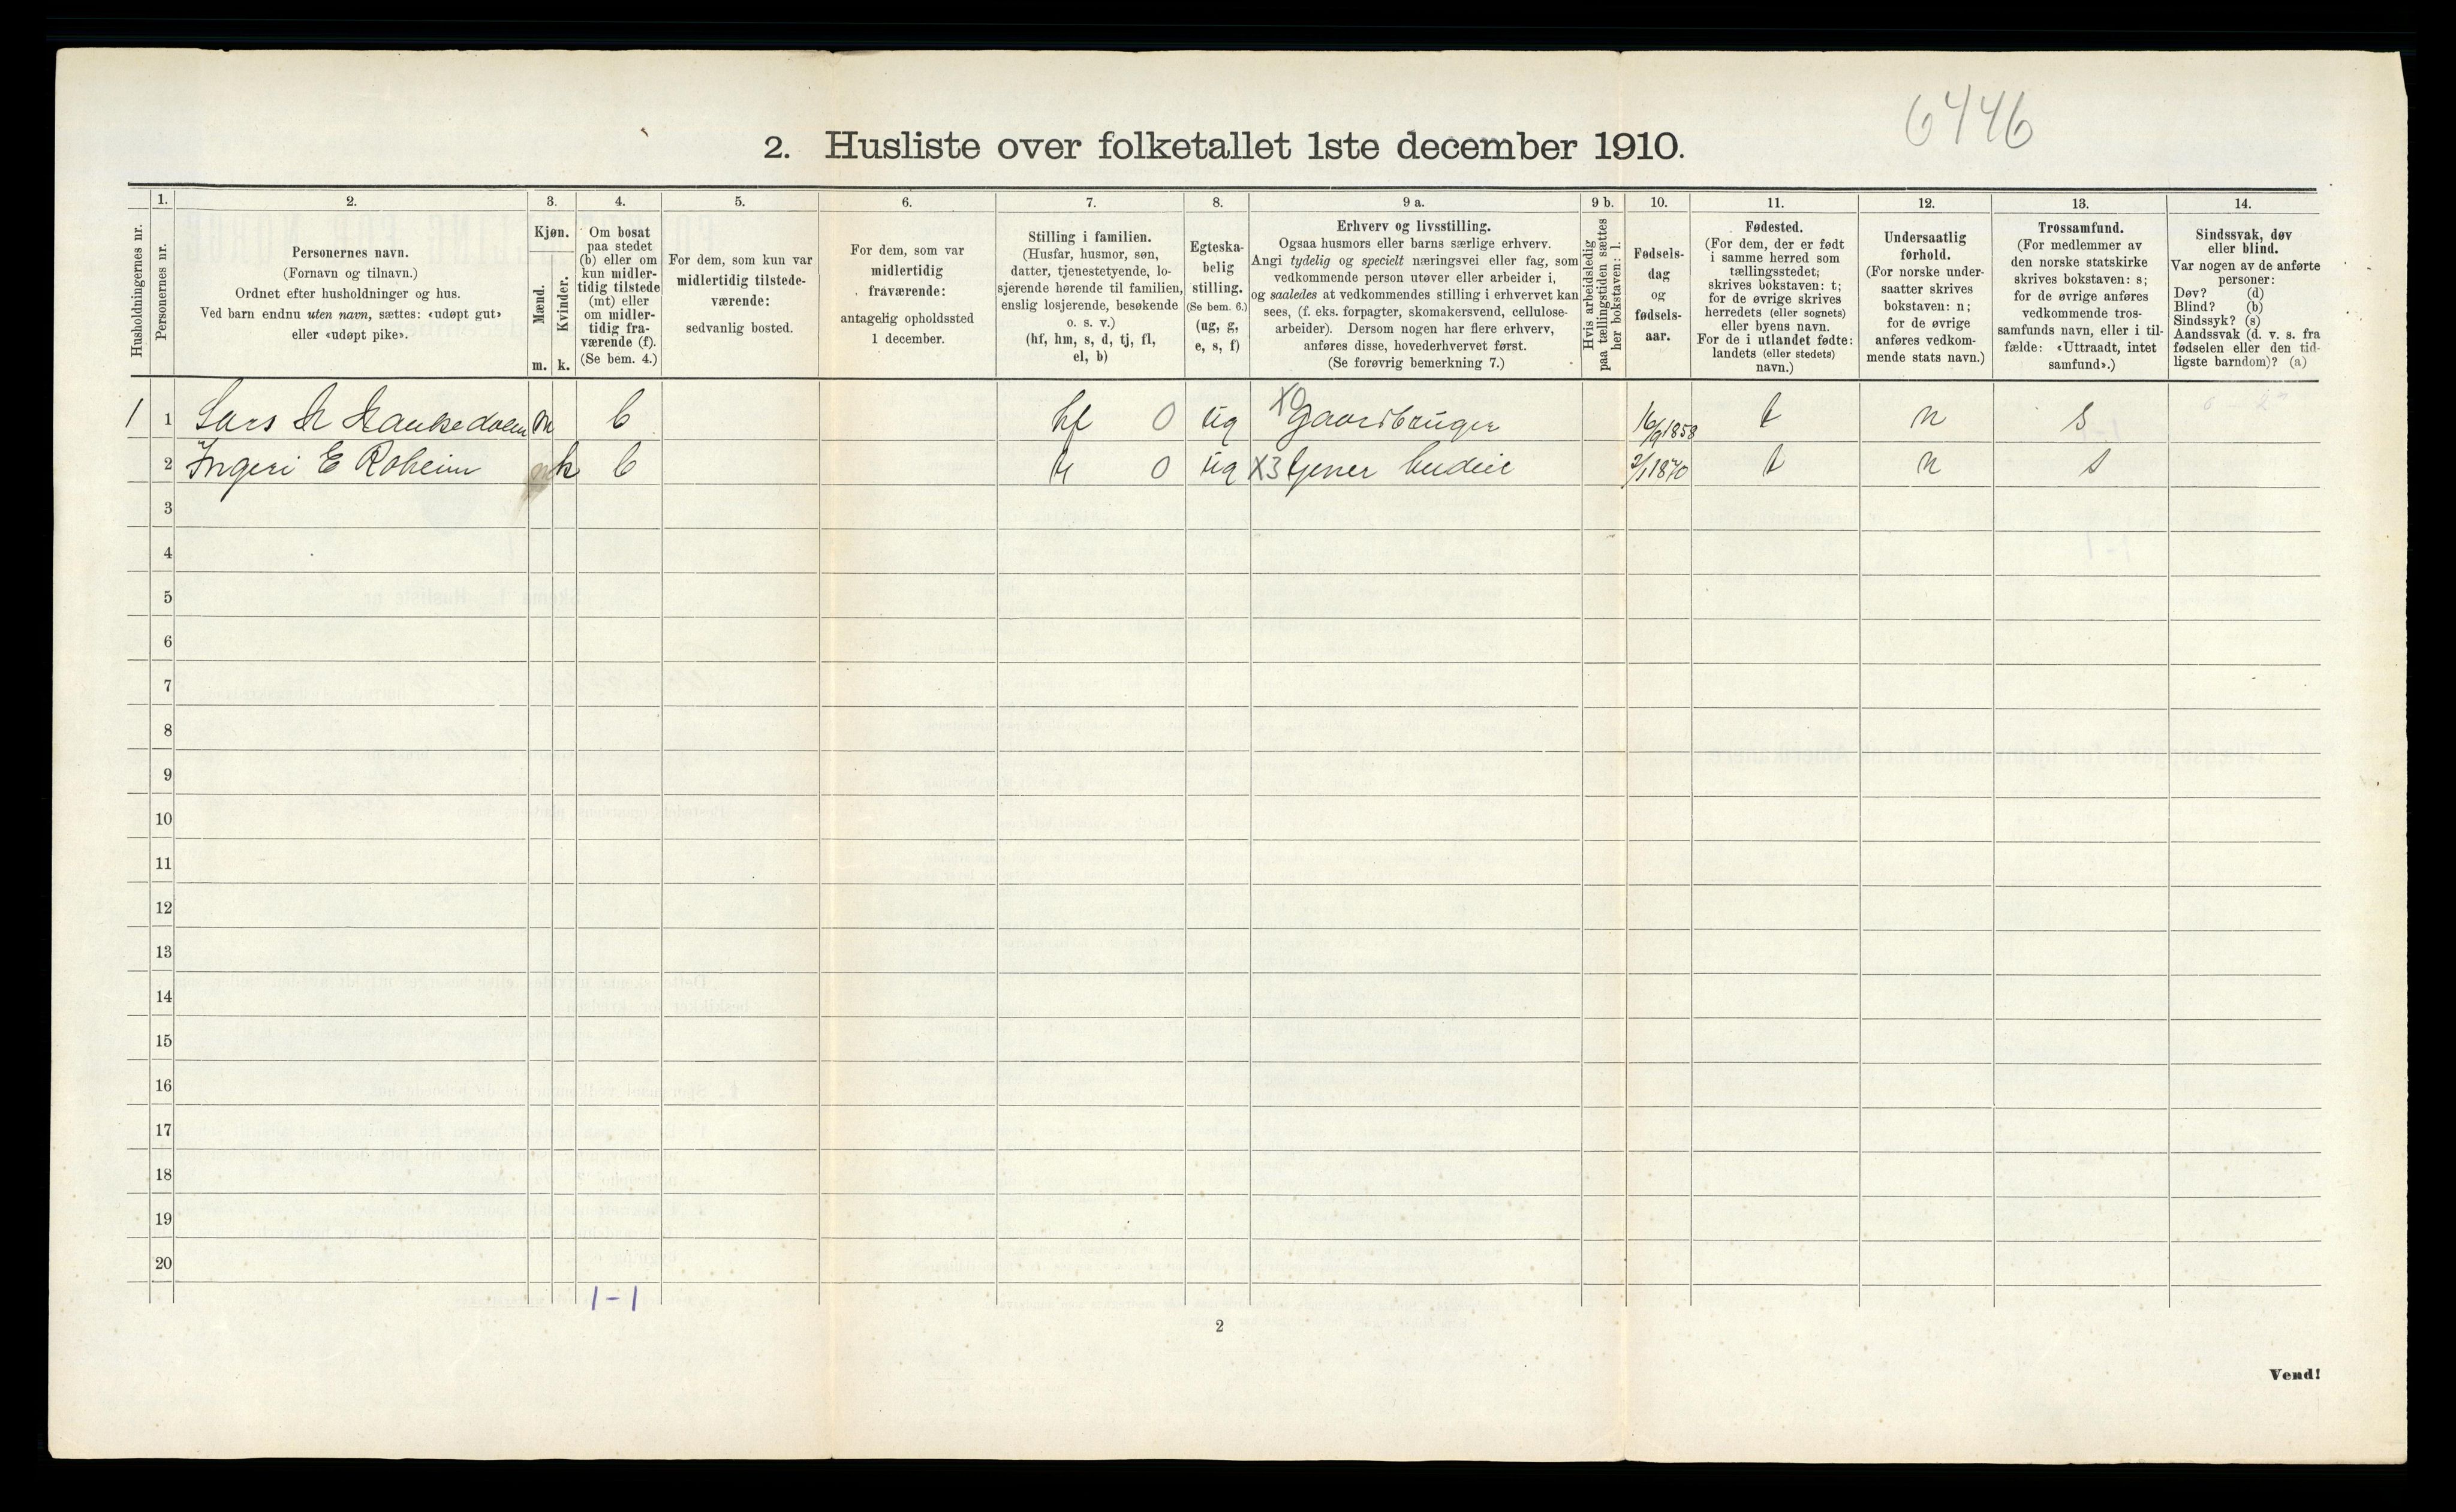 6446
2. Husliste over folketallet 1ste december 1910.
Husholdningernes nr.
1.
Personernes nr.
2.
Personernes navn.
(Fornavn og tilnavn.)
Ordnet efter husholdninger og hus.
Ved barn endnu uten navn, sættes: «udøpt gut»
eller «udøpt pike».
3.
Kjøn.
Mænd.
Kvinder.
m. k.
4.
Om bosat
paa stedet
(b) eller om
kun midler-
tidig tilstede
(mt) eller
om midler-
tidig fra-
værende (f).
(Se bem. 4.)
5.
For dem, som kun var
midlertidig tilstede-
værende:
sedvanlig bosted.
6.
For dem, som var
midlertidig
fraværende:
antagelig opholdssted
1 december.
7.
Stilling i familien.
(Husfar, husmor, søn,
datter, tjenestetyende, lo-
sjerende hørende til familien,
enslig losjerende, besøkende
o. s. v.)
(hf, hm, s, d, tj, fl,
el, b)
8.
Egteska-
belig
stilling.
(Se bem. 6.)
(ug, g,
e, s, f)
9 a.
Erhverv og livsstilling.
Ogsaa husmors eller barns særlige erhverv.
Angi tydelig og specielt næringsvei eller fag, som
vedkommende person utøver eller arbeider i,
og saaledes at vedkommendes stilling i erhvervet kan
sees, (f. eks. forpagter, skomakersvend, cellulose-
arbeider). Dersom nogen har flere erhverv,
anføres disse, hovederhvervet først.
(Se forøvrig bemerkning 7.)
9 b.
Hvis arbeidsledig
paa tællingstiden sættes
her bokstaven: l.
10.
Fødsels-
dag
og
fødsels-
aar.
11.
Fødested.
(For dem, der er født
i samme herred som
tællingsstedet;
skrives bokstaven: t;
for de øvrige skrives
herredets (eller sognets)
eller byens navn.
For de i utlandet fødte:
landets (eller stedets)
navn.)
12.
Undersaatlig
forhold.
(For norske under-
saatter skrives
bokstaven: n;
for de øvrige
anføres vedkom-
mende stats navn.)
13.
Trossamfund.
(For medlemmer av
den norske statskirke
skrives bokstaven: s;
for de øvrige anføres
vedkommende tros-
samfunds navn, eller i til-
fælde: «Uttraadt, intet
samfund».)
14.
Sindssvak, døv
eller blind.
Var nogen av de anførte
personer:
Døv? (d)
Blind? (b)
Sindssyk? (s)
Aandssvak (d. v. s. fra
fødselen eller den tid-
ligste barndom)? (a)
1 1 Lars m b hf 0 ug X0 Gaardbruger 16/9 1858 t n s
2 Ingeri E Roheim k b tj 0 ug X3 tjener budeie 2/1 1870 t n s
3
4
5
6
7
8
9
10
11
12
13
14
15
16
17
18
19
20
1-1
2
Vend!